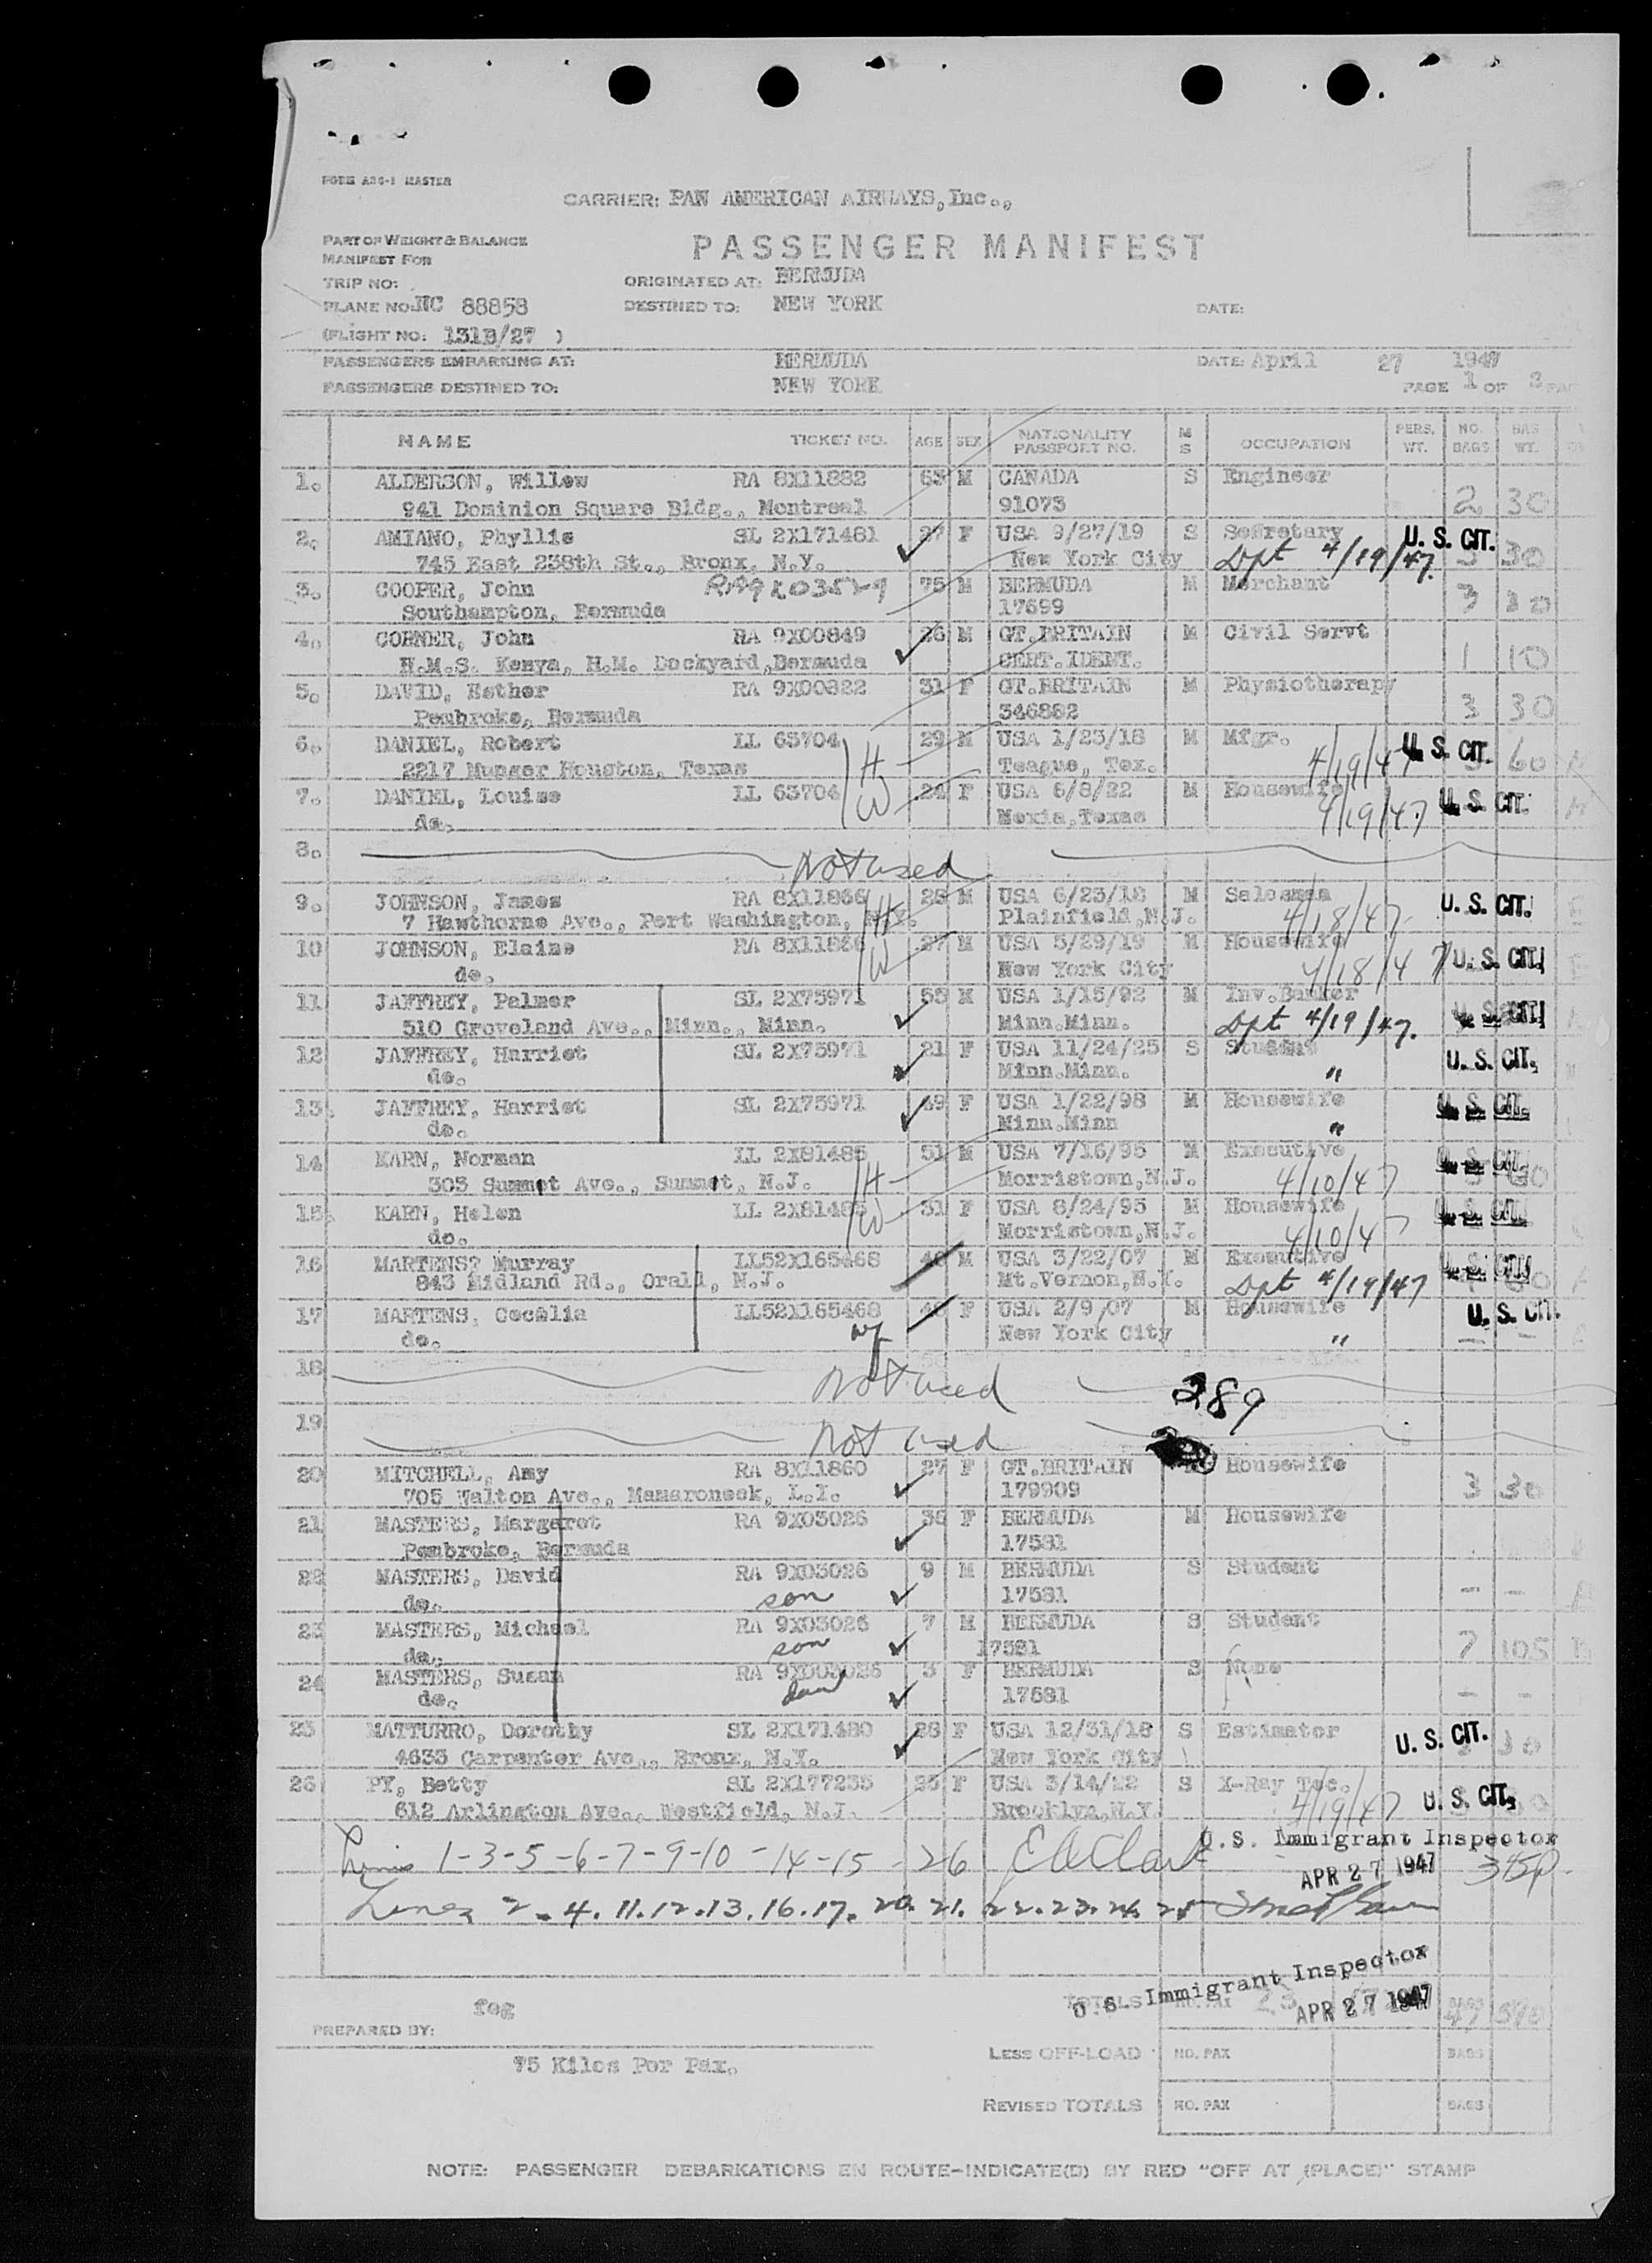 FORM A36-1 MASTER
CARRIER: PAN AMERICAN AIRWAYS, Inc.,
PART OF WEIGHT & BALANCE
MANIFEST FOR
PASSENGER MANIFEST
TRIP NO: ORIGINATED AT: BERMUDA
PLANE NO: NC 88858 DESTINED TO: NEW YORK DATE:
(FLIGHT NO: 131B/27 )
PASSENGERS EMBARKING AT: BERMUDA DATE: April 27 1947
PASSENGERS DESTINED TO: NEW YORK PAGE 1 OF 2
NAME TICKET NO. AGE SEX NATIONALITY PASSPORT NO. M S OCCUPATION PERS. WT. NO. BAGS BAG WT.
1. ALDERSON, Willow RA 8X11882 63 M CANADA S Engineer
941 Dominion Square Bldg., Montreal 91073 2 30
2. AMIANO, Phyllis SL 2X171481 27 F USA 9/27/19 S Secretary U. S. CIT.
745 East 238th St., Bronx, N.Y. New York City Dpt 4/19/47 30
3. COOPER, John 75 M BERMUDA M Merchant
Southampton, Bermuda 17699 3 30
4. CORNER, John RA 9X00849 26 M GT.BRITAIN M Civil Servt
H.M.S. Kenya, H.M. Dockyard,Bermuda CERT.IDENT. 1 10
5. DAVID, Esther RA 9X00822 31 F GT.BRITAIN M Physiotherapy
Pembroke, Bermuda 346882 3 30
6. DANIEL, Robert LL 63704 H 29 M USA 1/23/18 M Mfgr. U. S. CIT.
2217 Munger Houston, Texas Teague, Tex. 4/19/47 60
7. DANIEL, Louise LL 63704 W 24 F USA 6/8/22 M Housewife U. S. CIT.
do. Mexia,Texas 4/19/47
8. Not used
9. JOHNSON, James RA 8X11866 H 28 M USA 6/23/18 M Salesman U. S. CIT.
7 Hawthorne Ave., Port Washington, N.Y. Plainfield,N.J. 4/18/47
10 JOHNSON, Elaine RA 8X11866 W 27 M USA 5/29/19 M Housewife U. S. CIT.
do. New York City 4/18/47
11 JAFFREY, Palmer SL 2X75971 55 M USA 1/15/92 M Inv.Banker U. S. CIT.
510 Groveland Ave., Minn., Minn. Minn.Minn. Dpt 4/19/47.
12 JAFFREY, Harriet SL 2X75971 21 F USA 11/24/25 S Student U. S. CIT.
do. Minn.Minn. "
13. JAFFREY, Harriet SL 2X75971 49 F USA 1/22/98 M Housewife U. S. CIT.
do. Minn.Minn "
14 KARN, Norman LL 2X81485 H 51 M USA 7/16/95 M Executive U. S. CIT.
303 Summit Ave., Summit, N.J. Morristown,N.J. 4/10/47
15. KARN, Helen LL 2X81485 W 51 F USA 8/24/95 M Housewife U. S. CIT.
do. Morristown,N.J. 4/10/47
16 MARTENS? Murray LL52X165468 40 M USA 3/22/07 M Executive U. S. CIT.
843 Midland Rd., Orall, N.J. Mt.Vernon,N.Y. Dpt 4/19/47
17 MARTENS, Cecelia LL52X165468 40 F USA 2/9/07 M Housewife U. S. CIT.
do. wf New York City " — —
18 Not used 289
19 Not used
20 MITCHELL, Amy RA 8X11860 27 F GT.BRITAIN Housewife
705 Walton Ave., Mamaroneck, L.I. 179909 3 30
21 MASTERS, Margaret RA 9X03026 36 F BERMUDA M Housewife
Pembroke, Bermuda 17581
22 MASTERS, David RA 9X03026 9 M BERMUDA S Student
do. son 17581 — —
23 MASTERS, Michael RA 9X03026 7 M BERMUDA S Student
do. son 17581 7 105
24 MASTERS, Susan RA 9X003026 3 F BERMUDA S None
do. dau 17581 — —
25 MATTURRO, Dorothy SL 2X171480 28 F USA 12/31/18 S Estimator U. S. CIT.
4633 Carpenter Ave., Bronx, N.Y. New York City 30
26 PY, Betty SL 2X177235 25 F USA 3/14/22 S X-Ray Tec. U. S. CIT.
612 Arlington Ave., Westfield, N.J. Brooklyn,N.Y. 4/19/47
Lines 1-3-5-6-7-9-10-14-15-26 U.S. Immigrant Inspector
APR 27 1947
Lines 2.4.11.12.13.16.17.20.21.22.23.24.25
U.S. Immigrant Inspector
feg TOTALS NO. PAX 23 APR 27 1947 BAGS 47
PREPARED BY:
75 Kilos Per Pax. LESS OFF-LOAD NO. PAX BAGS
REVISED TOTALS NO. PAX BAGS
NOTE: PASSENGER DEBARKATIONS EN ROUTE-INDICATE(D) BY RED "OFF AT (PLACE)" STAMP